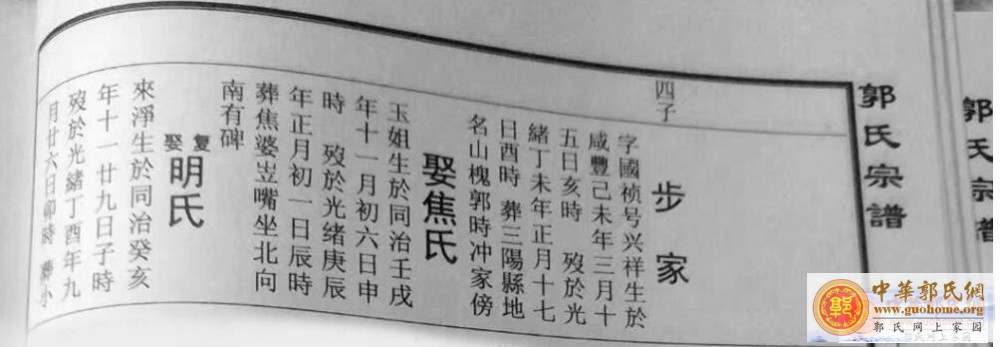 郭氏宗譜
四子
步家
字國祯号兴祥生於
咸豐己未年三月十
五日亥時 歿於光
緒丁未年正月十七
日酉時 葬三陽縣地
名山槐郭時冲家傍
娶焦氏
玉姐生於同治壬戌
年十一月初六日申
時 歿於光绪庚辰
年正月初一日辰時
葬焦婆岦嘴坐北向
南有碑
复娶明氏
來淨生於同治癸亥
年十一廿九日子時
歿於光緒丁酉年九
月廿六日卯時 葬小
郭氏宗譜
中華郭氏網
www.guohome.org
郭氏网上家园